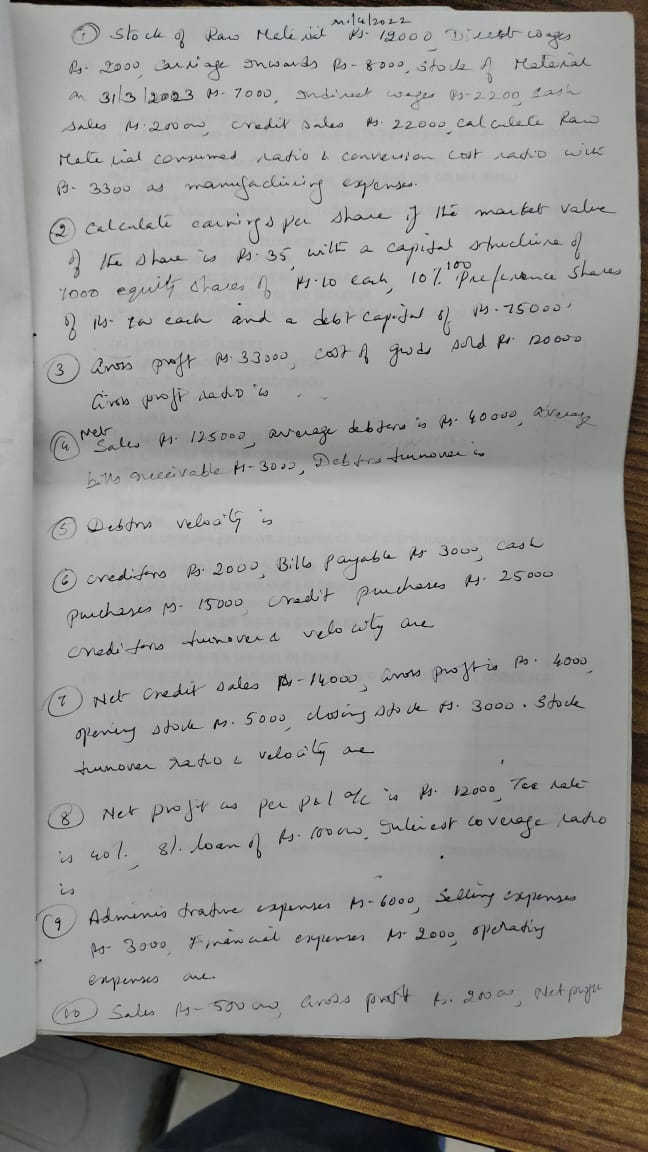 on 1/4/2022
① Stock of Raw Material Rs. 12000, Direct wages
Rs. 2000, Carriage Inwards Rs-8000, Stock of Material
on 31/3/2023 Rs- 7000, Indirect wages Rs-2200, Cash
sales Rs. 20000, credit sales Rs. 22000, Calculate Raw
Material consumed ratio & conversion cost ratio with
Rs- 3300 as manufacturing expenses.
② Calculate earnings per share if the market value
of the share is Rs. 35, with a capital structure of
7000 equity shares of Rs.10 each, 10% 100 Preference Shares
of Rs. 100 each and a debt capital of Rs. 75000.
③ Gross profit Rs. 33000, cost of goods sold Rs. 120000
Gross profit ratio is . .
④ Net Sales Rs. 125000, average debtors is Rs. 40000, average
bills receivable Rs-3000, Debtors turnover is
⑤ Debtors velocity is
⑥ creditors Rs. 2000, Bills Payable Rs 3000, cash
purchases Rs- 15000, credit purchases Rs. 25000
creditors turnover & velocity are
⑦ Net credit sales Rs-14000, Gross profit is Rs. 4000,
opening stock Rs. 5000, closing stock Rs. 3000. Stock
turnover ratio & velocity are
⑧ Net profit as per P&L a/c is Rs. 12000, Tax rate
is 40%, 8%. loan of Rs. 10000, Interest coverage ratio
is
⑨ Administrative expenses Rs-6000, Selling expenses
Rs- 3000, Financial expenses Rs- 2000, operating
expenses are
⑩ Sales Rs-50000, Gross profit Rs. 20000, Net profit